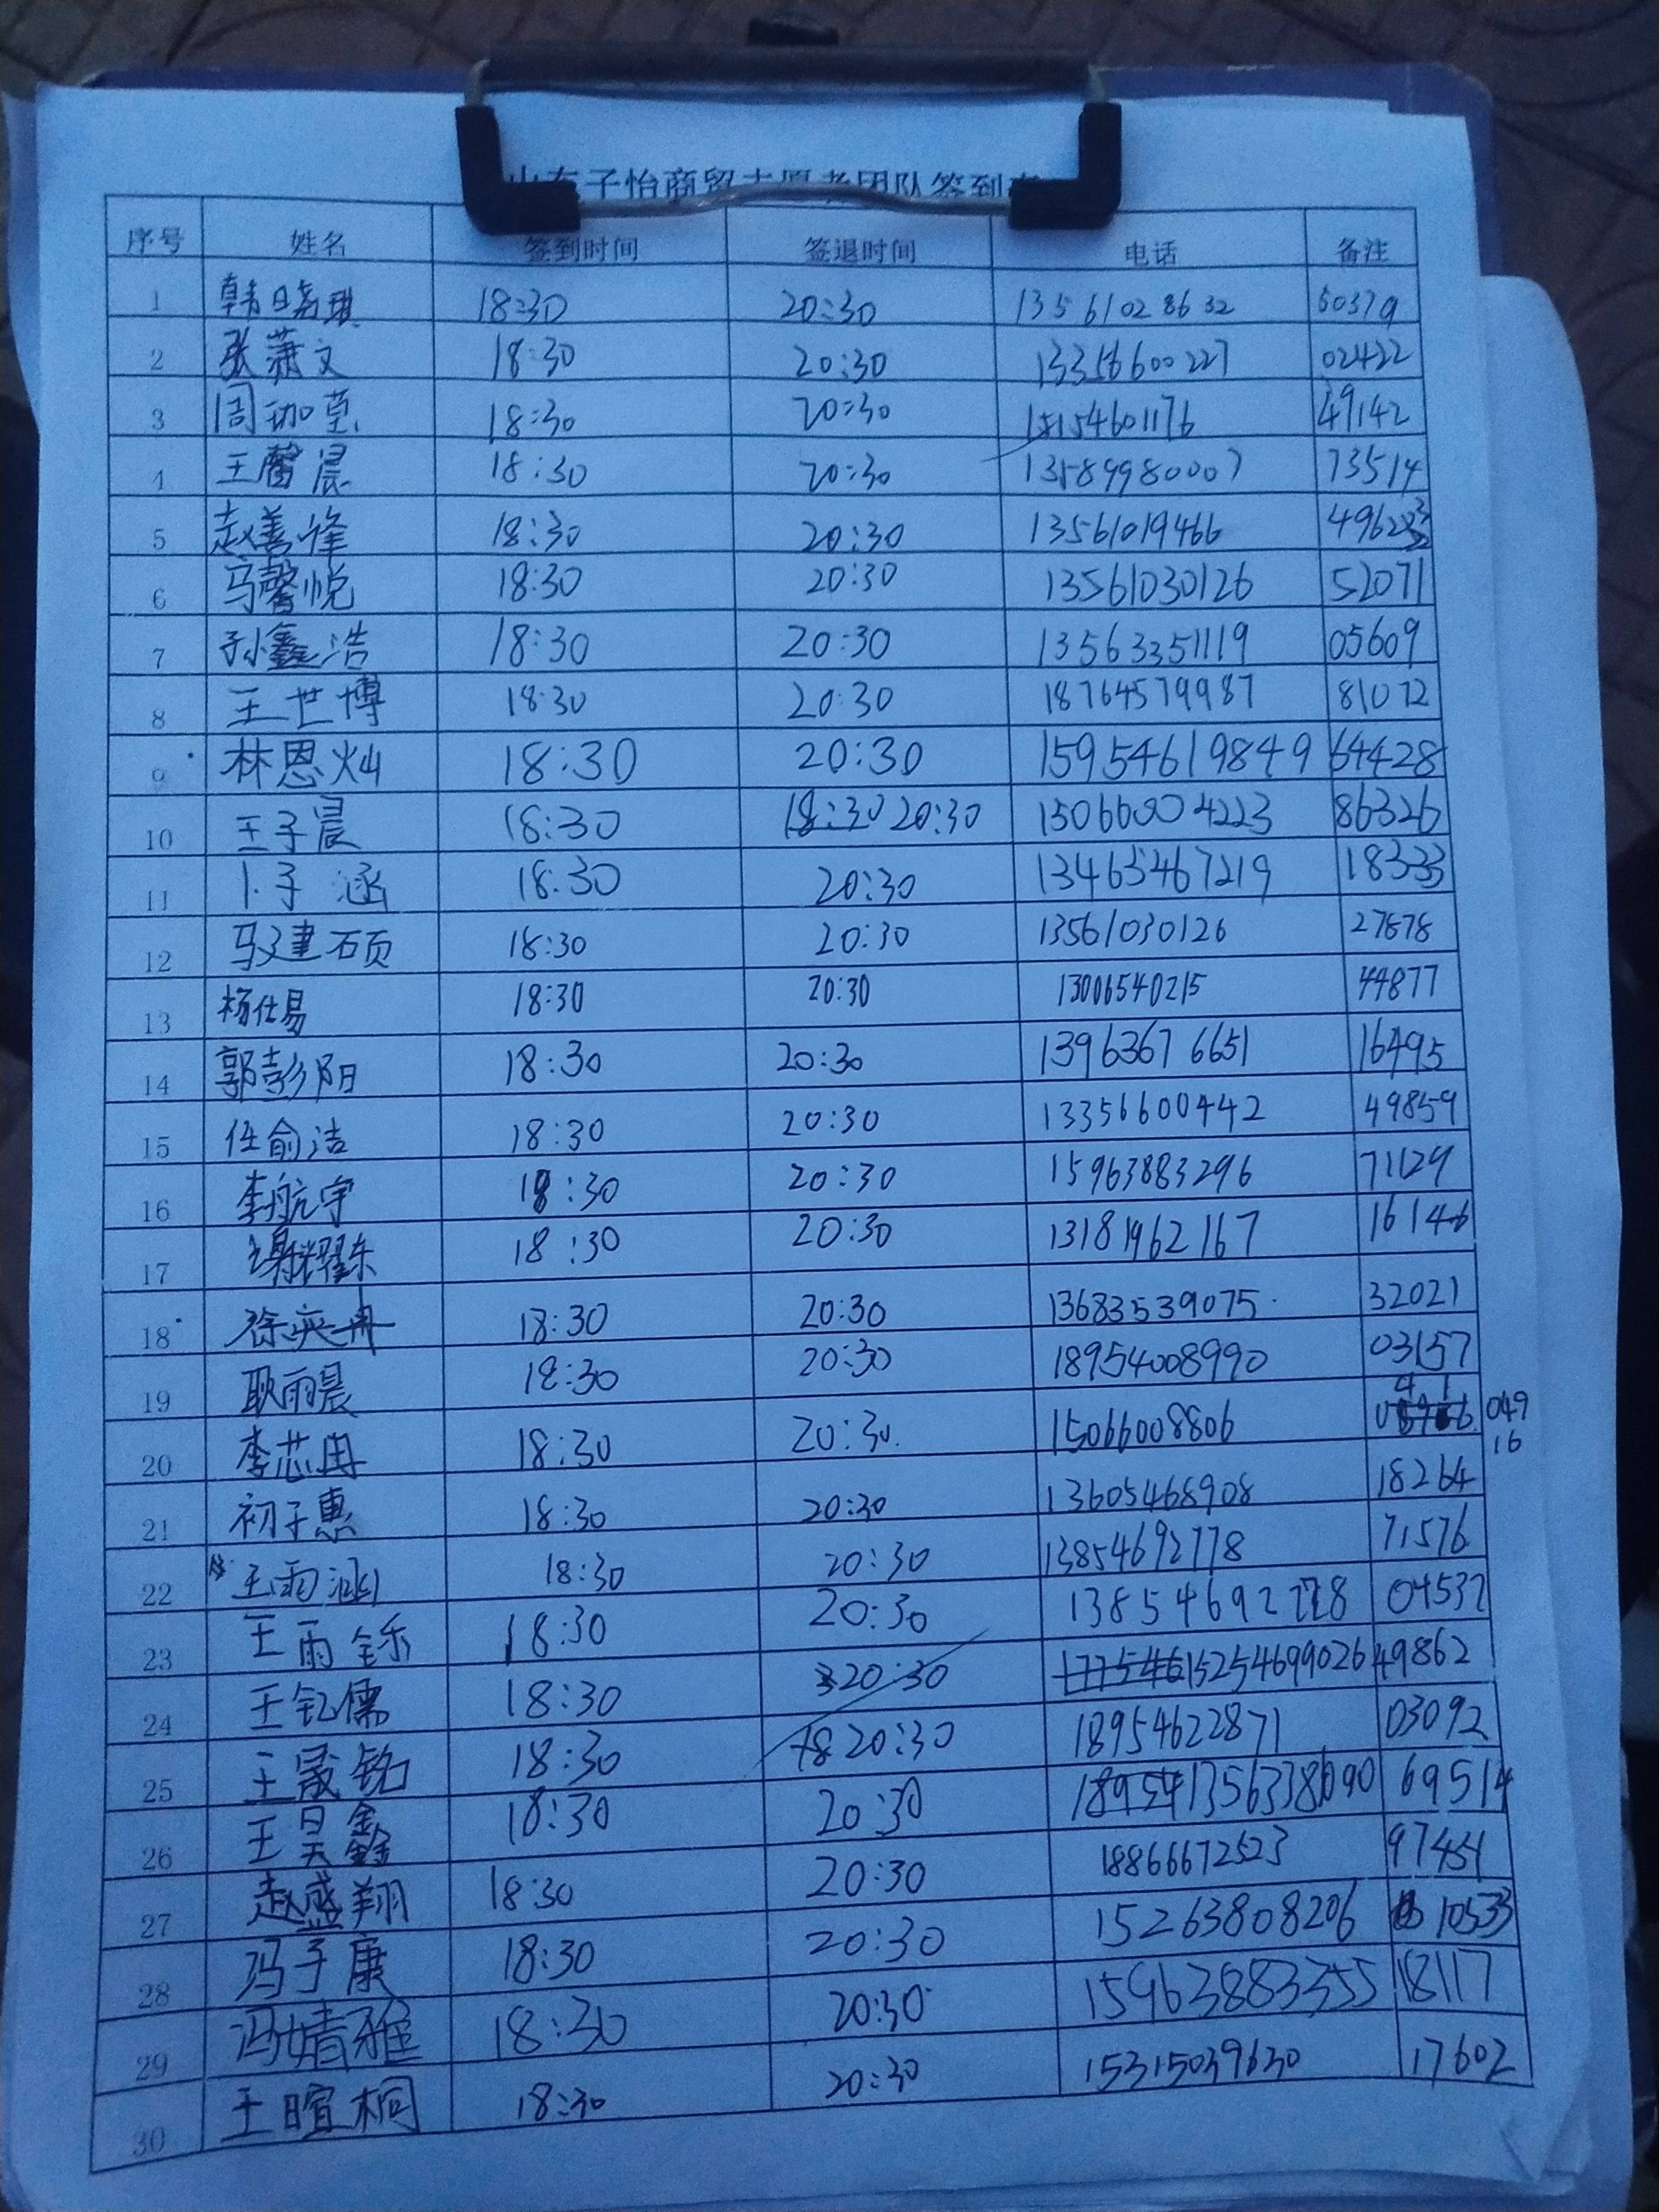 山东子怡商贸志愿者团队签到表
序号 姓名 签到时间 签退时间 电话 备注
1 韩晓琪 18:30 20:30 13561028632 50379
2 张潇文 18:30 20:30 13356600227 02422
3 周珈莹 18:30 20:30 15154601176 49142
4 王馨晨 18:30 20:30 13589980007 73514
5 赵善锋 18:30 20:30 13561019466
6 马馨悦 18:30 20:30 13561030126 52071
7 孙鑫浩 18:30 20:30 13563351119 05609
8 王世博 18:30 20:30 18764579987 81072
9 林恩灿 18:30 20:30 15954619849 64428
10 王子晨 18:30 18:30 20:30 15066004223 86326
11 卜子涵 18:30 20:30 13463467219 18333
12 马建硕 18:30 20:30 13561030126 27878
13 杨仕易 18:30 20:30 13006540215 44877
14 郭彭阳 18:30 20:30 13963676651 16495
15 任俞洁 18:30 20:30 13356600442 49859
16 李航宇 18:30 20:30 15963883296 71129
17 谢耀乐 18:30 20:30 13181962167 16146
18 徐奕冉 18:30 20:30 13683539075 32021
19 耿雨晨 18:30 20:30 18954008990 03157
20 李芯冉 18:30 20:30 15066008806 04916
21 初子惠 18:30 20:30 13605468908 18264
22 王雨涵 18:30 20:30 13854692778 71576
23 王雨铄 18:30 20:30 13854692778 04537
24 王钇儒 18:30 20:30 1775461 15254699026 49862
25 王晟铭 18:30 18 20:30 18954622871 03092
26 王昊鑫 18:30 20:30 18954 13563386090 69514
27 赵盛翔 18:30 20:30 18866672523 97451
28 冯子康 18:30 20:30 15263808206 10533
29 冯婧雅 18:30 20:30 15963883355 18117
30 王暄桐 18:30 20:30 15315039630 17602